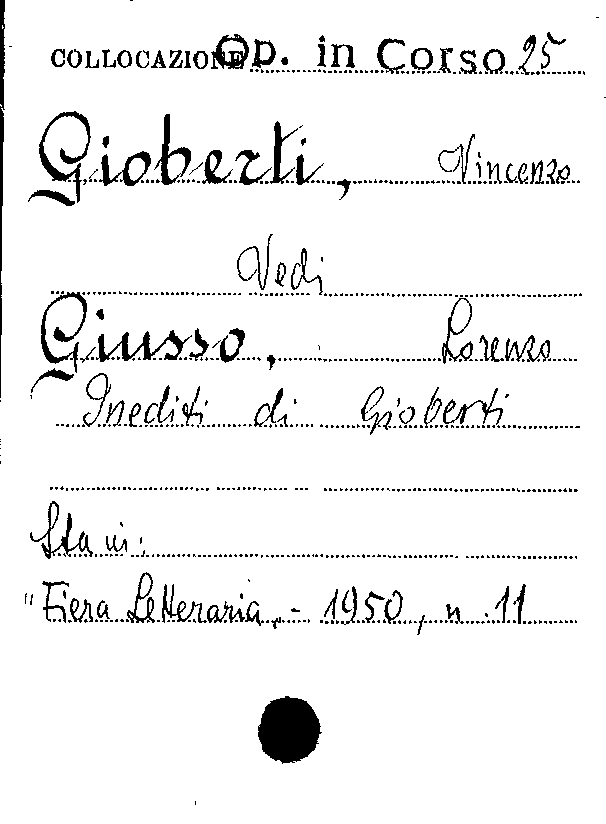 COLLOCAZIONE Op. in Corso 25
Gioberti, Vincenzo
Vedi
Giusso, Lorenzo
Inediti di Gioberti
Sta in:
"Fiera Letteraria" - 1950, n. 11